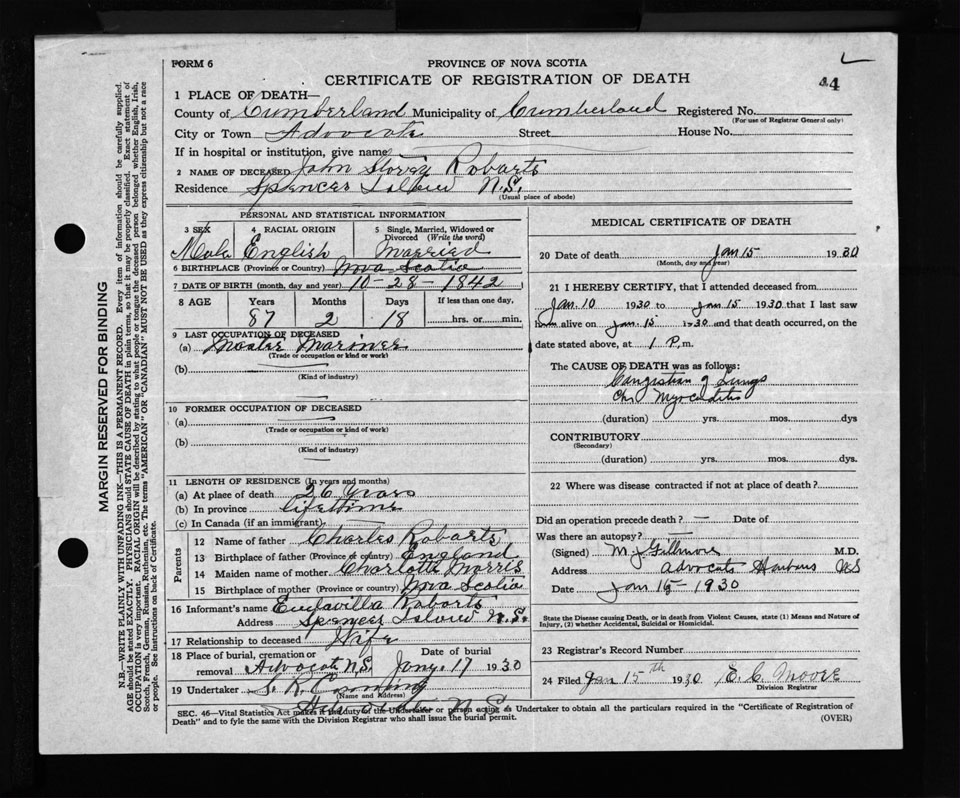 FORM 6
PROVINCE OF NOVA SCOTIA
CERTIFICATE OF REGISTRATION OF DEATH
44
1 PLACE OF DEATH—
County of Cumberland Municipality of Cumberland Registered No.
(For use of Registrar General only)
City or Town Advocate Street House No.
If in hospital or institution, give name
2 NAME OF DECEASED John Storey Robarts
Residence Spencer Island N.S.
(Usual place of abode)
PERSONAL AND STATISTICAL INFORMATION
3 SEX 4 RACIAL ORIGIN 5 Single, Married, Widowed or Divorced (Write the word)
Male English Married
6 BIRTHPLACE (Province or Country) Nova Scotia
7 DATE OF BIRTH (month, day and year) 10-28-1842
8 AGE Years Months Days If less than one day,
87 2 18 hrs. or min.
9 LAST OCCUPATION OF DECEASED
(a) Master Mariner
(Trade or occupation or kind of work)
(b)
(Kind of industry)
10 FORMER OCCUPATION OF DECEASED
(a)
(Trade or occupation or kind of work)
(b)
(Kind of industry)
11 LENGTH OF RESIDENCE (In years and months)
(a) At place of death 26 Years
(b) In province lifetime
(c) In Canada (if an immigrant)
Parents
12 Name of father Charles Robarts
13 Birthplace of father (Province or country) England
14 Maiden name of mother Charlotte Morris
15 Birthplace of mother (Province or country) Nova Scotia
16 Informant's name Robarts
Address Spencer Island N.S.
17 Relationship to deceased Wife
18 Place of burial, cremation or removal Advocate N.S. Date of burial Jany. 17 1930
19 Undertaker
(Name and Address)
N.S.
MEDICAL CERTIFICATE OF DEATH
20 Date of death Jan 15 1930
(Month, day and year)
21 I HEREBY CERTIFY, that I attended deceased from
Jan. 10 1930 to Jan 15 1930 that I last saw
him alive on Jan. 15 1930 and that death occurred, on the
date stated above, at 1 P.m.
The CAUSE OF DEATH was as follows:
Congestion of Lungs
Chr Myocarditis
(duration) yrs. mos. dys
CONTRIBUTORY
(Secondary)
(duration) yrs. mos. dys.
22 Where was disease contracted if not at place of death?
Did an operation precede death? — Date of
Was there an autopsy? —
(Signed) M. J. Gillmore M.D.
Address Advocate Harbour N.S
Date Jan 15 - 1930
State the Disease causing Death, or in death from Violent Causes, state (1) Means and Nature of Injury, (2) whether Accidental, Suicidal or Homicidal.
23 Registrar's Record Number
24 Filed Jan 15th 1930 E. C. Moore
Division Registrar
SEC. 46—Vital Statistics Act makes it the duty of the Undertaker or person acting as Undertaker to obtain all the particulars required in the "Certificate of Registration of
Death" and to fyle the same with the Division Registrar who shall issue the burial permit.
(OVER)
MARGIN RESERVED FOR BINDING
N.B.—WRITE PLAINLY WITH UNFADING INK—THIS IS A PERMANENT RECORD. Every item of information should be carefully supplied.
AGE should be stated EXACTLY. PHYSICIANS should STATE CAUSE OF DEATH in plain terms, so that it may be properly classified. Exact statement of
OCCUPATION is very important. RACIAL ORIGIN will be described by stating to what people or tongue the deceased person belonged whether English, Irish,
Scotch, French, German, Russian, Ruthenian, etc. The terms "AMERICAN" OR "CANADIAN" MUST NOT BE USED as they express citizenship but not a race
or people. See instructions on back of Certificate.